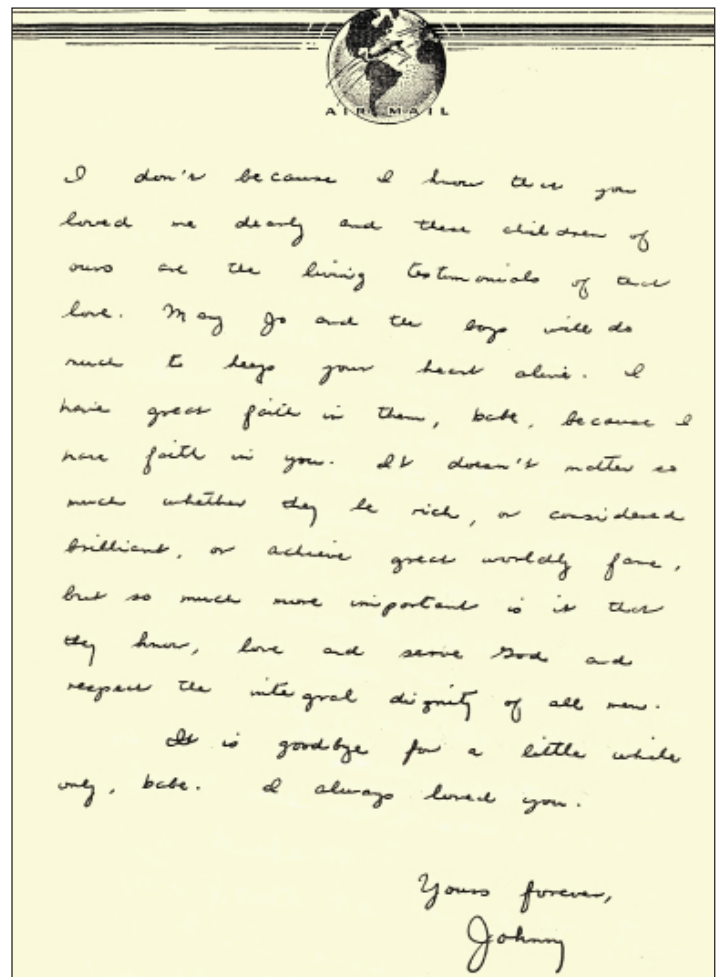 AIR MAIL
I don't because I know that you
loved me dearly and these children of
ours are the living testimonials of that
love. Mary Jo and the boys will do
much to keep your heart alive. I
have great faith in them, babe, because I
have faith in you. It doesn't matter so
much whether they be rich, or considered
brilliant, or achieve great worldly fame,
but so much more important is it that
they know, love and serve God and
respect the integral dignity of all men.
It is goodbye for a little while
only, babe. I always loved you.
Yours forever,
Johnny